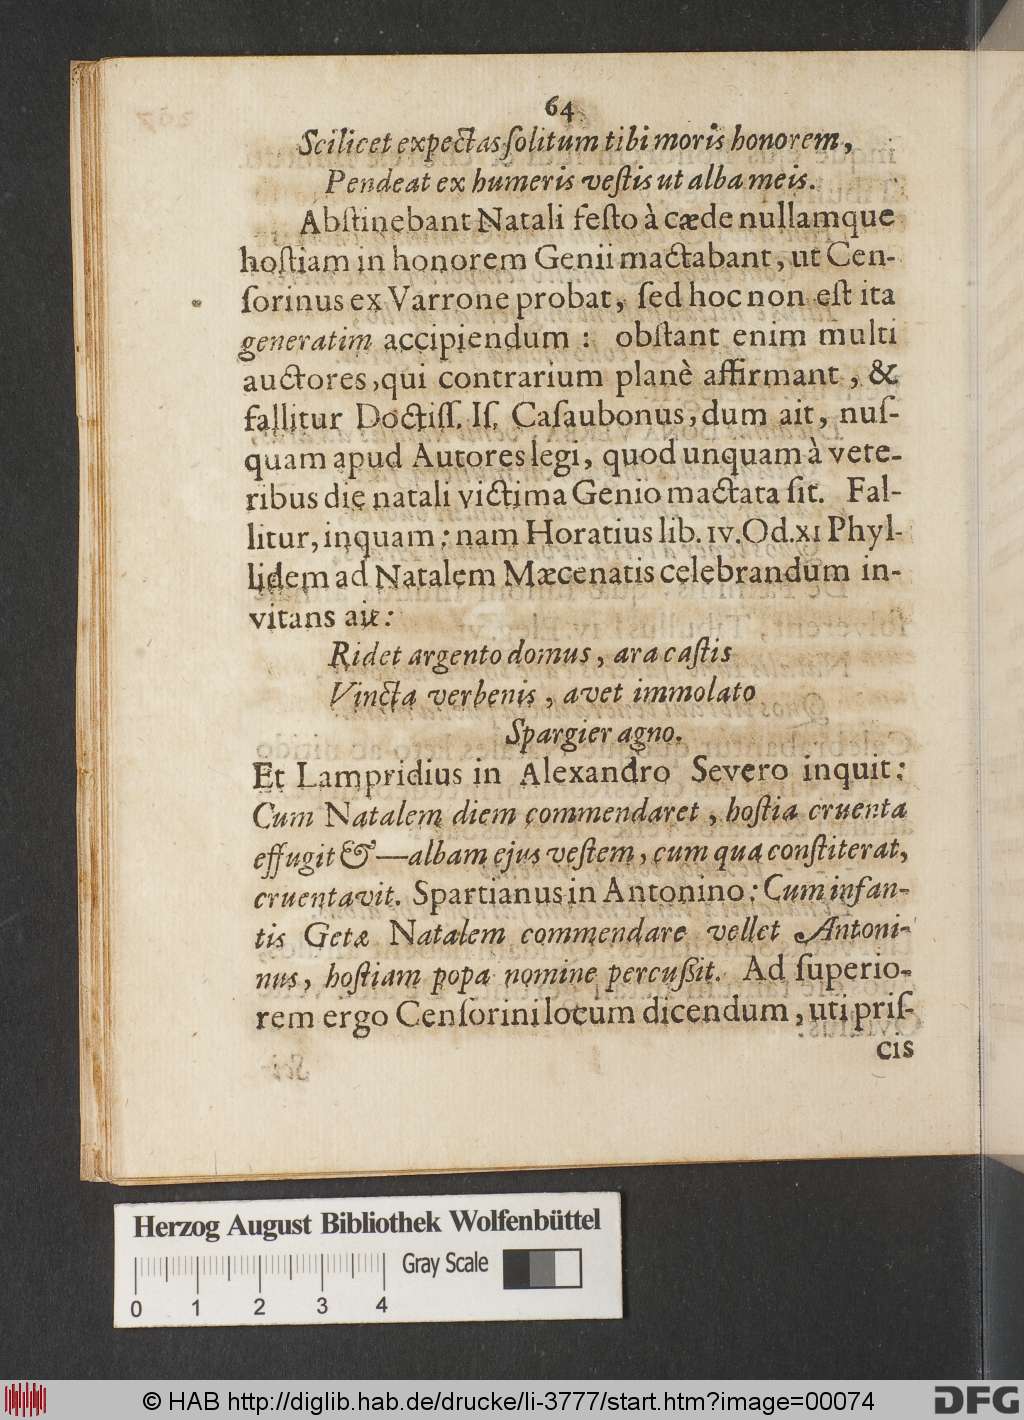 64
Scilicet expectas ſolitum tibi moris honorem,
Pendeat ex humeris veſtis ut alba meis.
Abſtinebant Natali feſto à cæde nullamque
hoſtiam in honorem Genii mactabant, ut Cen-
ſorinus ex Varrone probat, ſed hoc non eſt ita
generatim accipiendum : obſtant enim multi
auctores, qui contrarium planè affirmant, &
fallitur Doctiſſ. Iſ. Caſaubonus, dum ait, nuſ-
quam apud Autores legi, quod unquam à vete-
ribus die natali victima Genio mactata ſit. Fal-
litur, inquam: nam Horatius lib. IV. Od. XI Phyl-
lidem ad Natalem Mæcenatis celebrandum in-
vitans ait:
Ridet argento domus, ara caſtis
Vincta verbenis, avet immolato
Spargier agno.
Et Lampridius in Alexandro Severo inquit:
Cum Natalem diem commendaret, hoſtia cruenta
effugit &—albam ejus veſtem, cum qua conſtiterat,
cruentavit. Spartianus in Antonino: Cum infan-
tis Getæ Natalem commendare vellet Antoni-
nus, hoſtiam popa nomine percuſſit. Ad ſuperio-
rem ergo Cenſorini locum dicendum, uti priſ-
cis
Herzog August Bibliothek Wolfenbüttel
Gray Scale
0 1 2 3 4
© HAB http://diglib.hab.de/drucke/li-3777/start.htm?image=00074
DFG